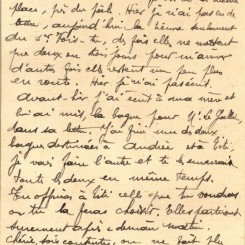 place, près du poêle. Hier je n'ai pas eu de
lettre, aujourd'hui la tienne seulement
du 5. Vois-tu, des fois elle ne mettent
que deux ou trois jours pour m'arriver
d'autres fois elle restent un peu plus
en route. Hier je n'ai pas écrit.
Avant-hier j'ai écrit à ma mère et
lui ai mis la bague pour
dans sa lettre. J'ai fini une des deux
bagues destinées à Andrée et à Titi.
Je vais faire l'autre et te les enverrai
toute les deux en même temps.
Tu offriras à Titi celle que tu voudras
ou tu la feras choisir. Elles partiront
surement après-demain matin.
Chérie, sois contente, on ne fait plus